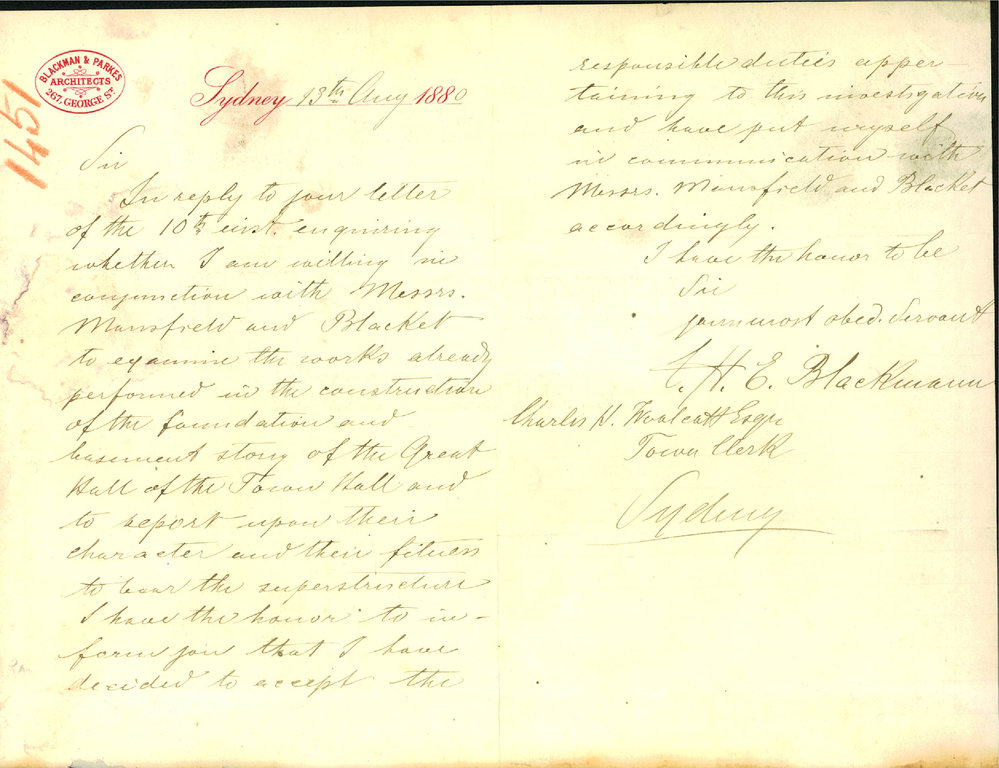 1451
BLACKMAN & PARKES
ARCHITECTS
267, GEORGE ST.
Sydney 13th Aug 1880
Sir
In reply to your letter
of the 10th inst. enquiring
whether I am willing in
conjunction with Messrs.
Mansfield and Blacket
to examine the works already
performed in the construction
of the foundation and
basement story of the Great
Hall of the Town Hall and
to report upon their
character and their fitness
to bear the superstructure
I have the honor to in-
form you that I have
decided to accept the
responsible duties apper-
taining to this investigation
and have put myself
in communication with
Messrs. Mansfield and Blacket
accordingly.
I have the honor to be
Sir
your most obed. Servant
C. H. E. Blackmann
Charles H. Woolcott Esqre
Town Clerk
Sydney